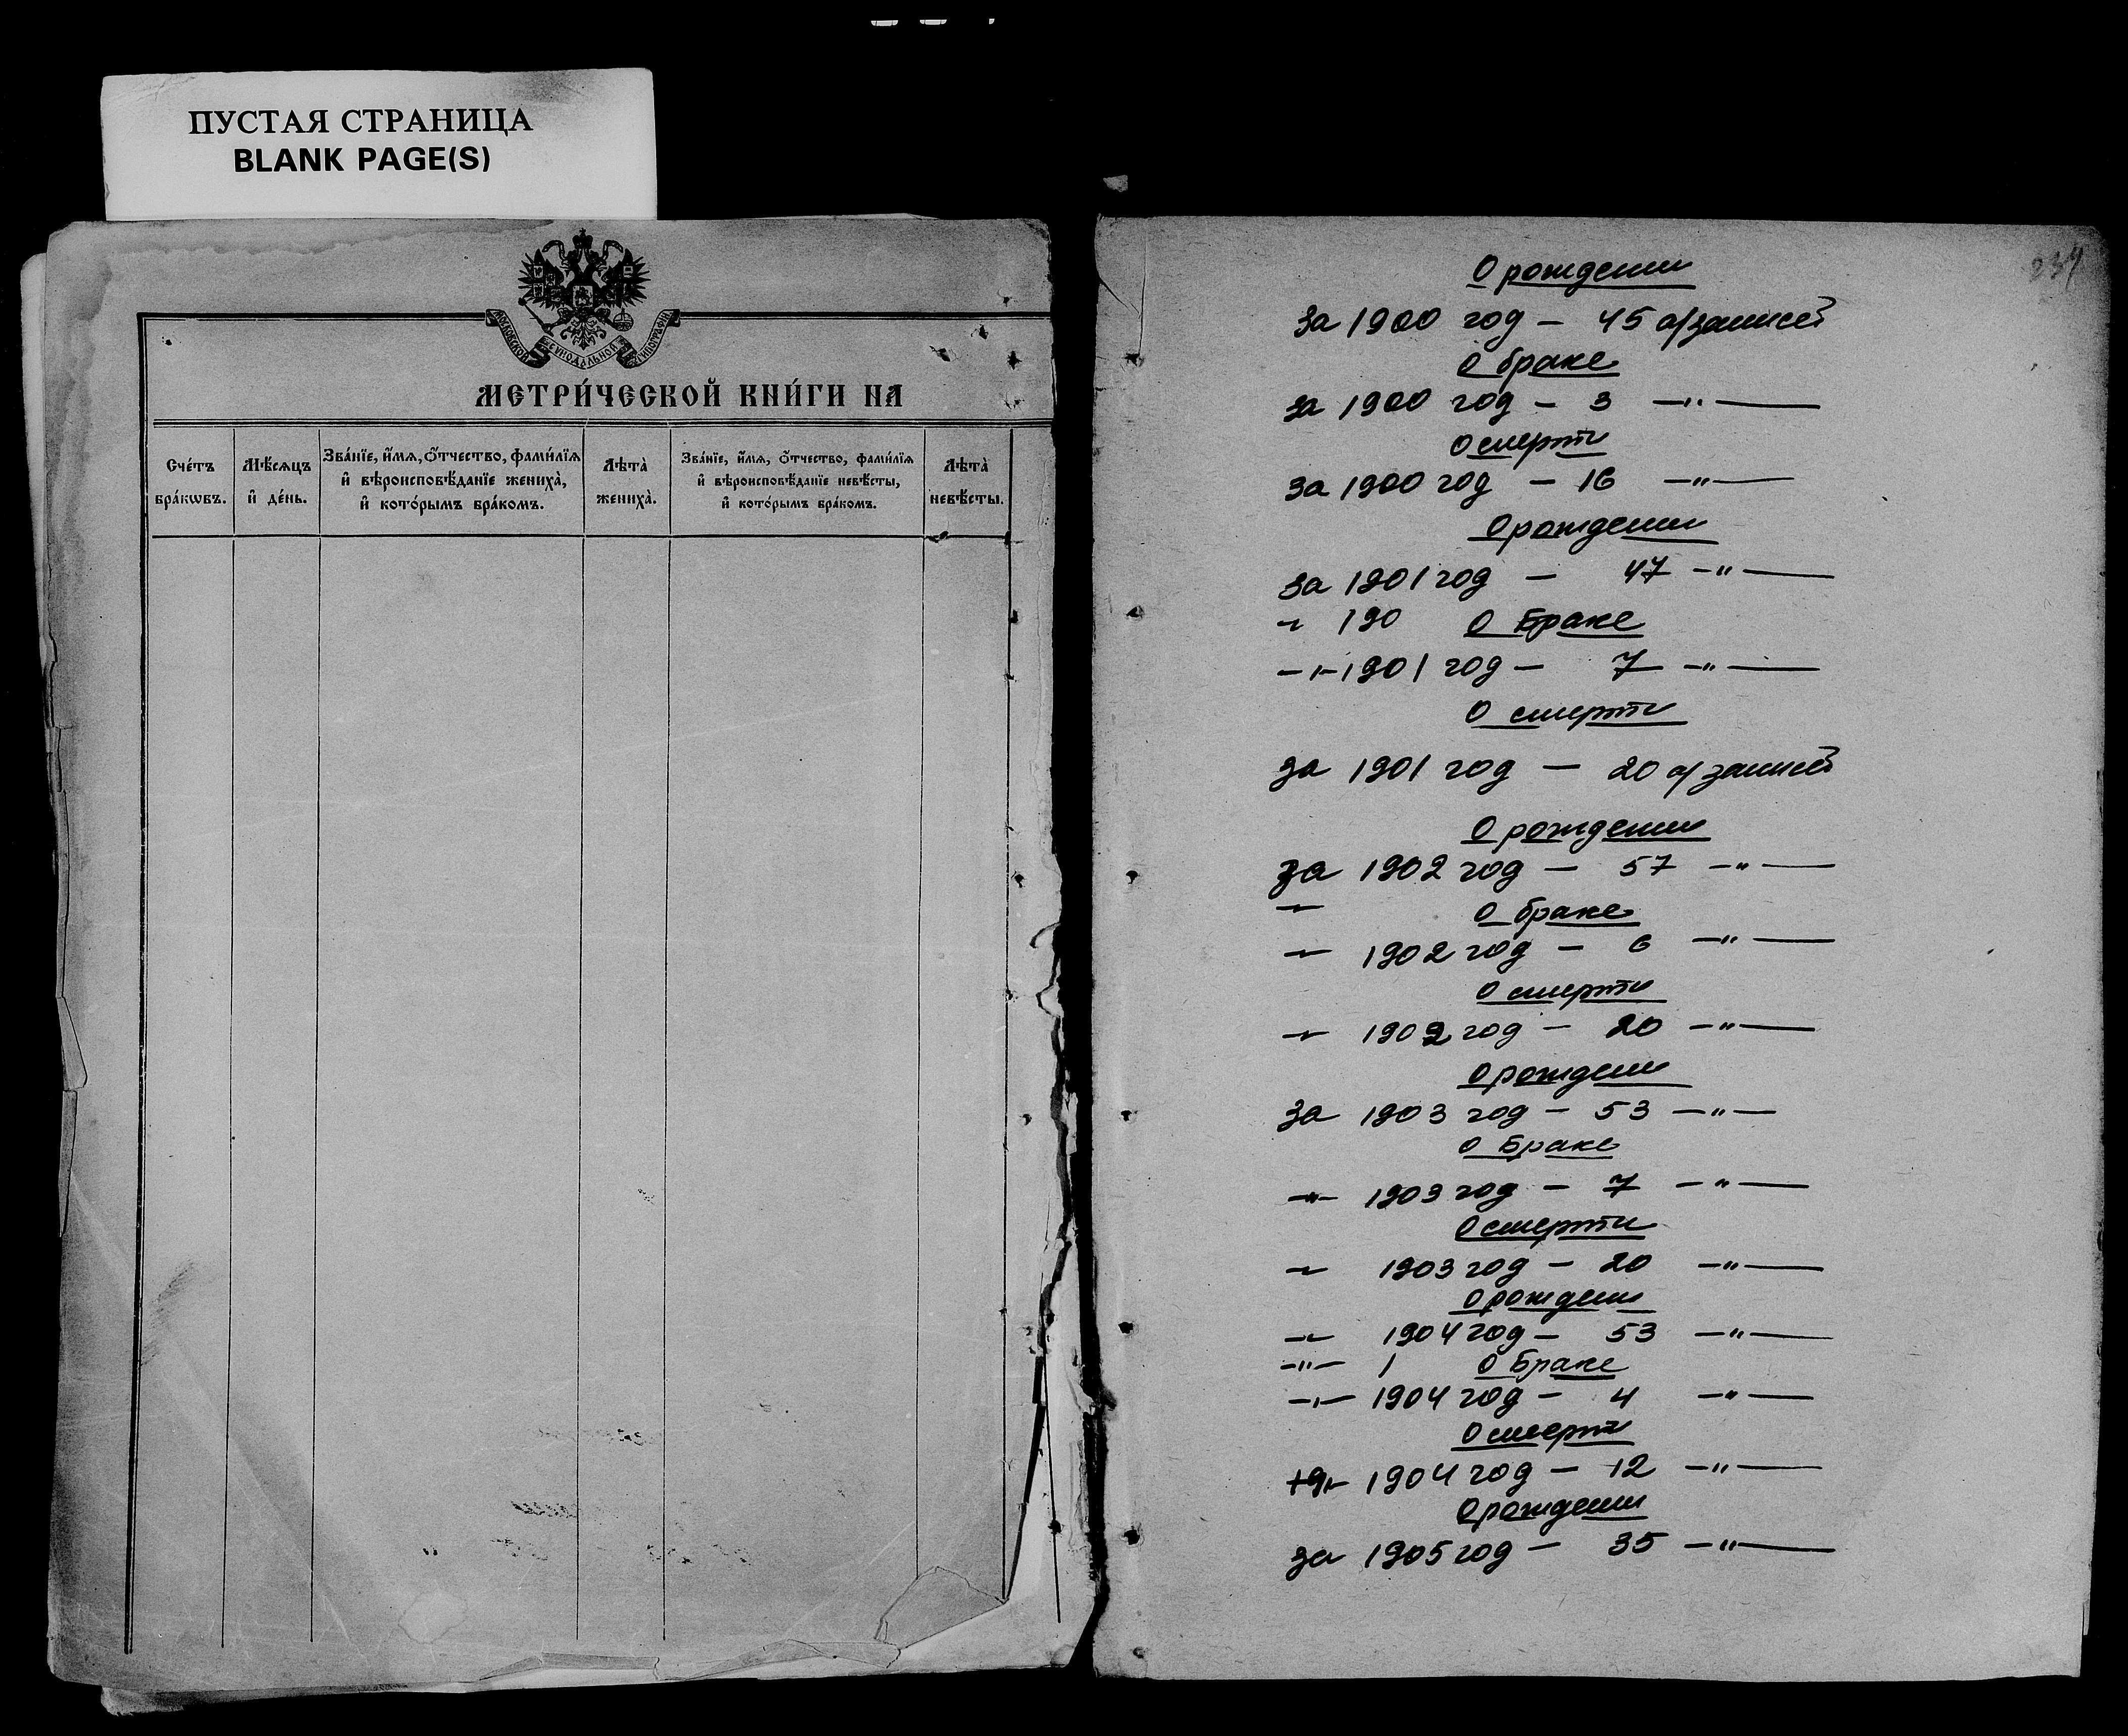 ПУСТАЯ СТРАНИЦА
BLANK PAGE(S)
МОСКОВСКОЙ СѴНОДАЛЬНОЙ ТИПОГРАФІИ
МЕТРИ́ЧЕСКОЙ КНИ́ГИ НА
Сче́тъ бра́кѡвъ.
Мѣ́сѧцъ и҆ де́нь.
Зва́нїе, и҆́мѧ, ѻ҆́тчество, фами́лїѧ и҆ вѣроисповѣ́данїе жениха̀, и҆ кото́рымъ бра́комъ.
Лѣта̀ жениха̀.
Зва́нїе, и҆́мѧ, ѻ҆́тчество, фами́лїѧ и҆ вѣроисповѣ́данїе невѣ́сты, и҆ кото́рымъ бра́комъ.
Лѣта̀ невѣ́сты.
239
О рождении
За 1900 год – 45 а/записей
О браке
за 1900 год – 3 –„–
О смерти
за 1900 год – 16 –„–
О рождении
за 1901 год – 47 –„–
–„– 190 О Браке
–„– 1901 год – 7 –„–
О смерти
за 1901 год – 20 а/записей
О рождении
за 1902 год – 57 –„–
–„– О браке
–„– 1902 год – 6 –„–
О смерти
–„– 1902 год – 20 –„–
О рождении
За 1903 год – 53 –„–
О Браке
–„– 1903 год – 7 –„–
О смерти
–„– 1903 год – 20 –„–
О рождении
–„– 1904 год – 53 –„–
–„– 1 О Браке
–„– 1904 год – 4 –„–
О смерти
–„– 1904 год – 12 –„–
О рождении
за 1905 год – 35 –„–